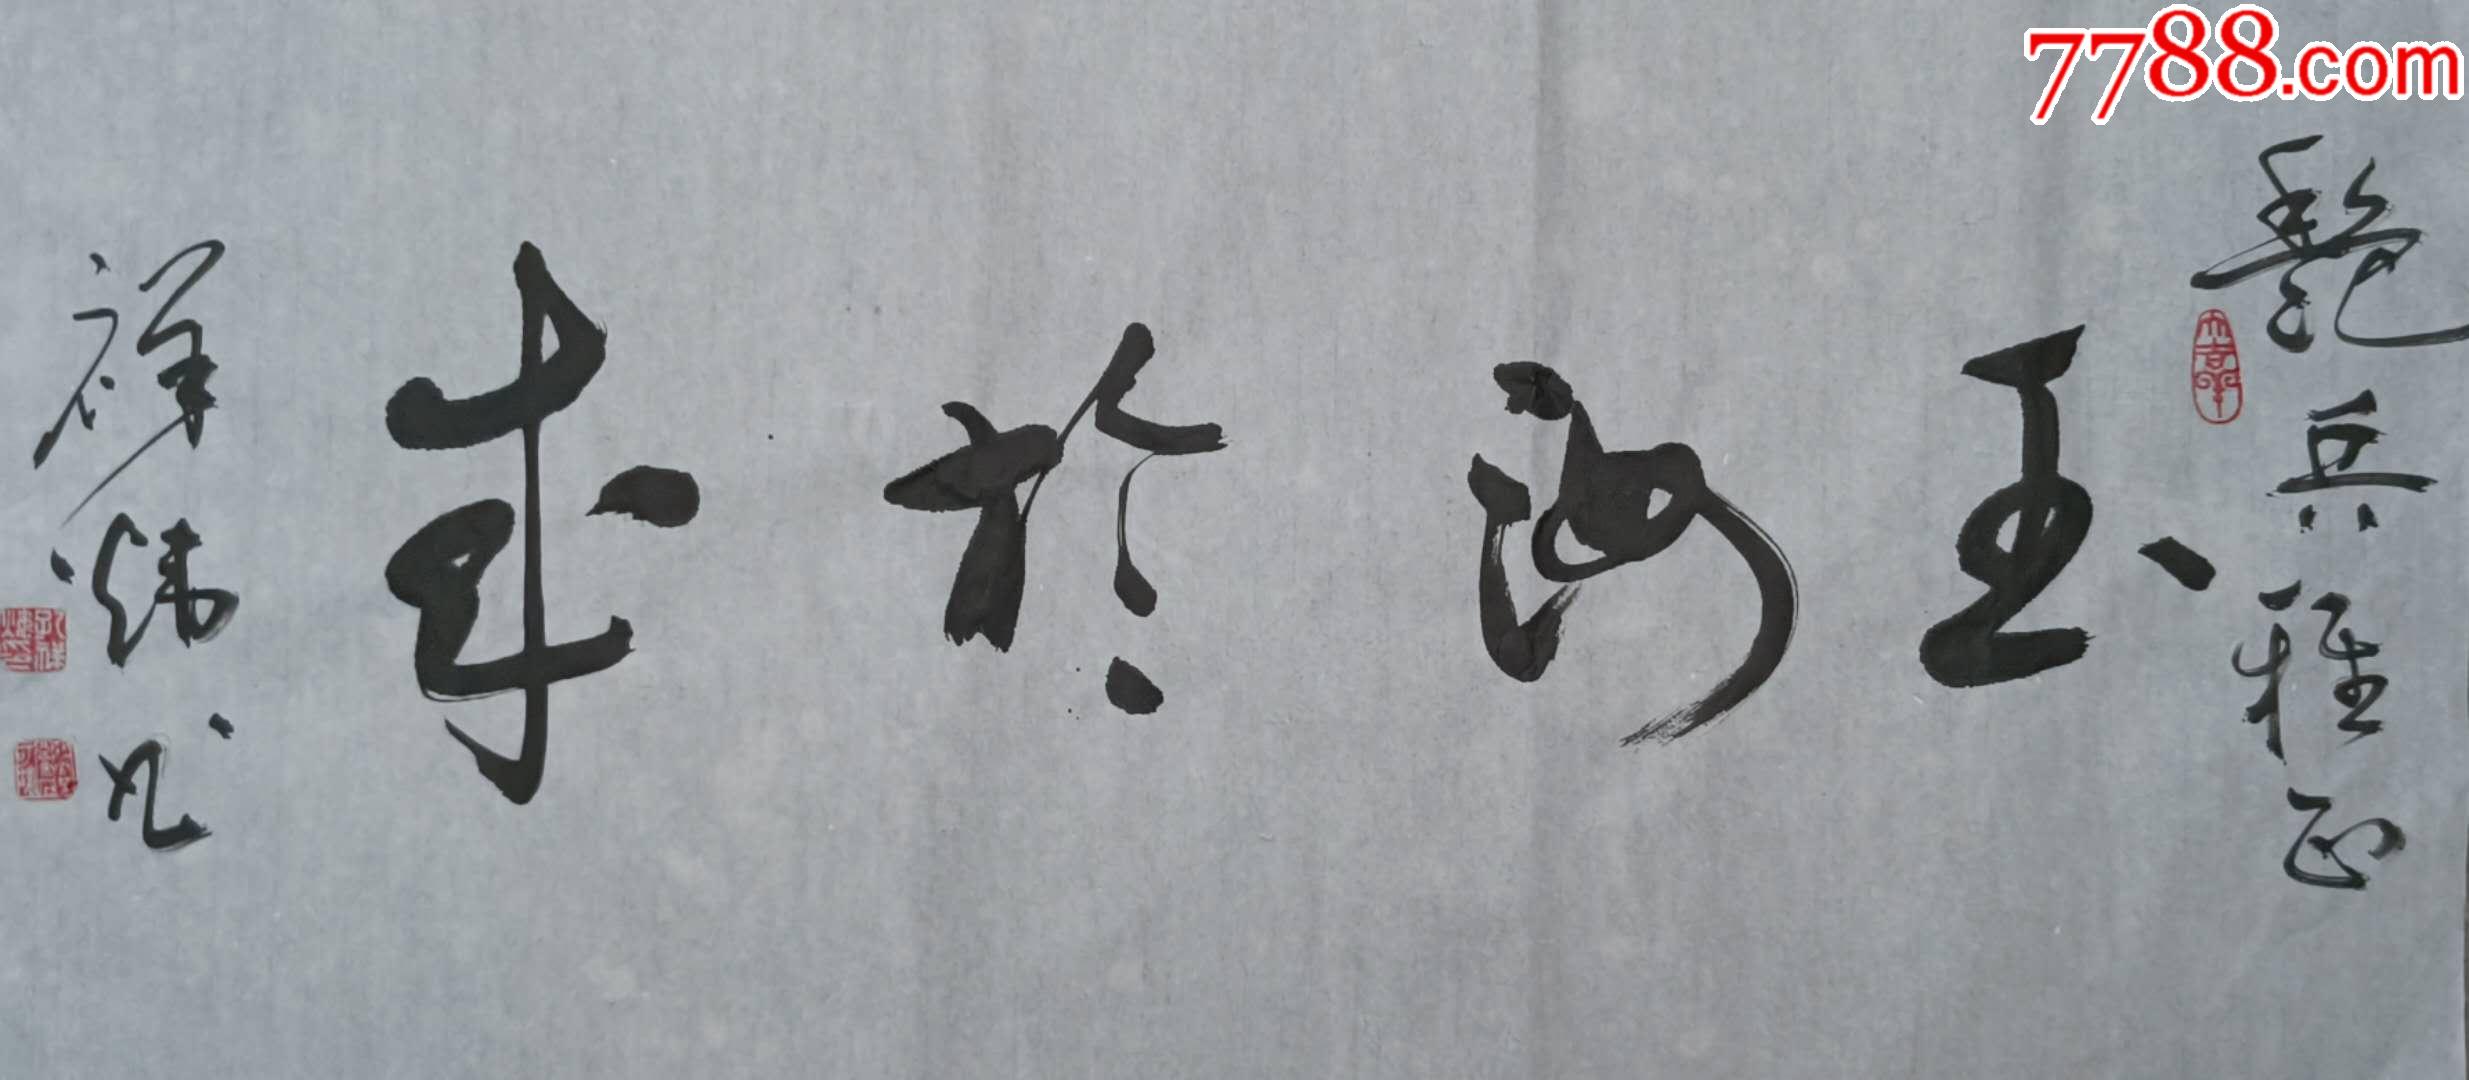 7788.com
艷兵雅正
玉汝於成
祥煒书